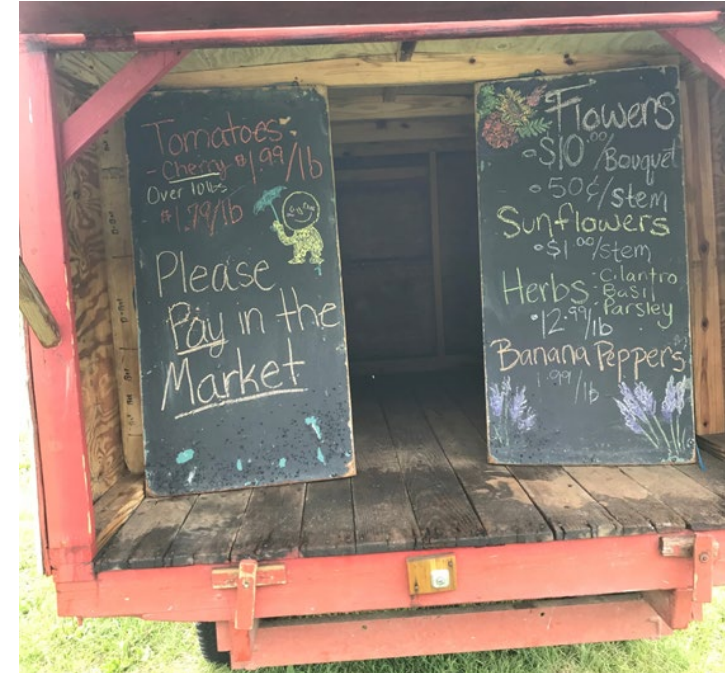 Tomatoes:
- Cherry $1.99/lb
Over 10lbs
$1.79/lb
Please
Pay in the
Market
Flowers
•$10.00/Bouquet
•50¢/stem
Sunflowers
•$1.00/stem
Herbs
•Cilantro
•Basil
•Parsley
•12.99/lb
Banana Peppers
1.99/lb